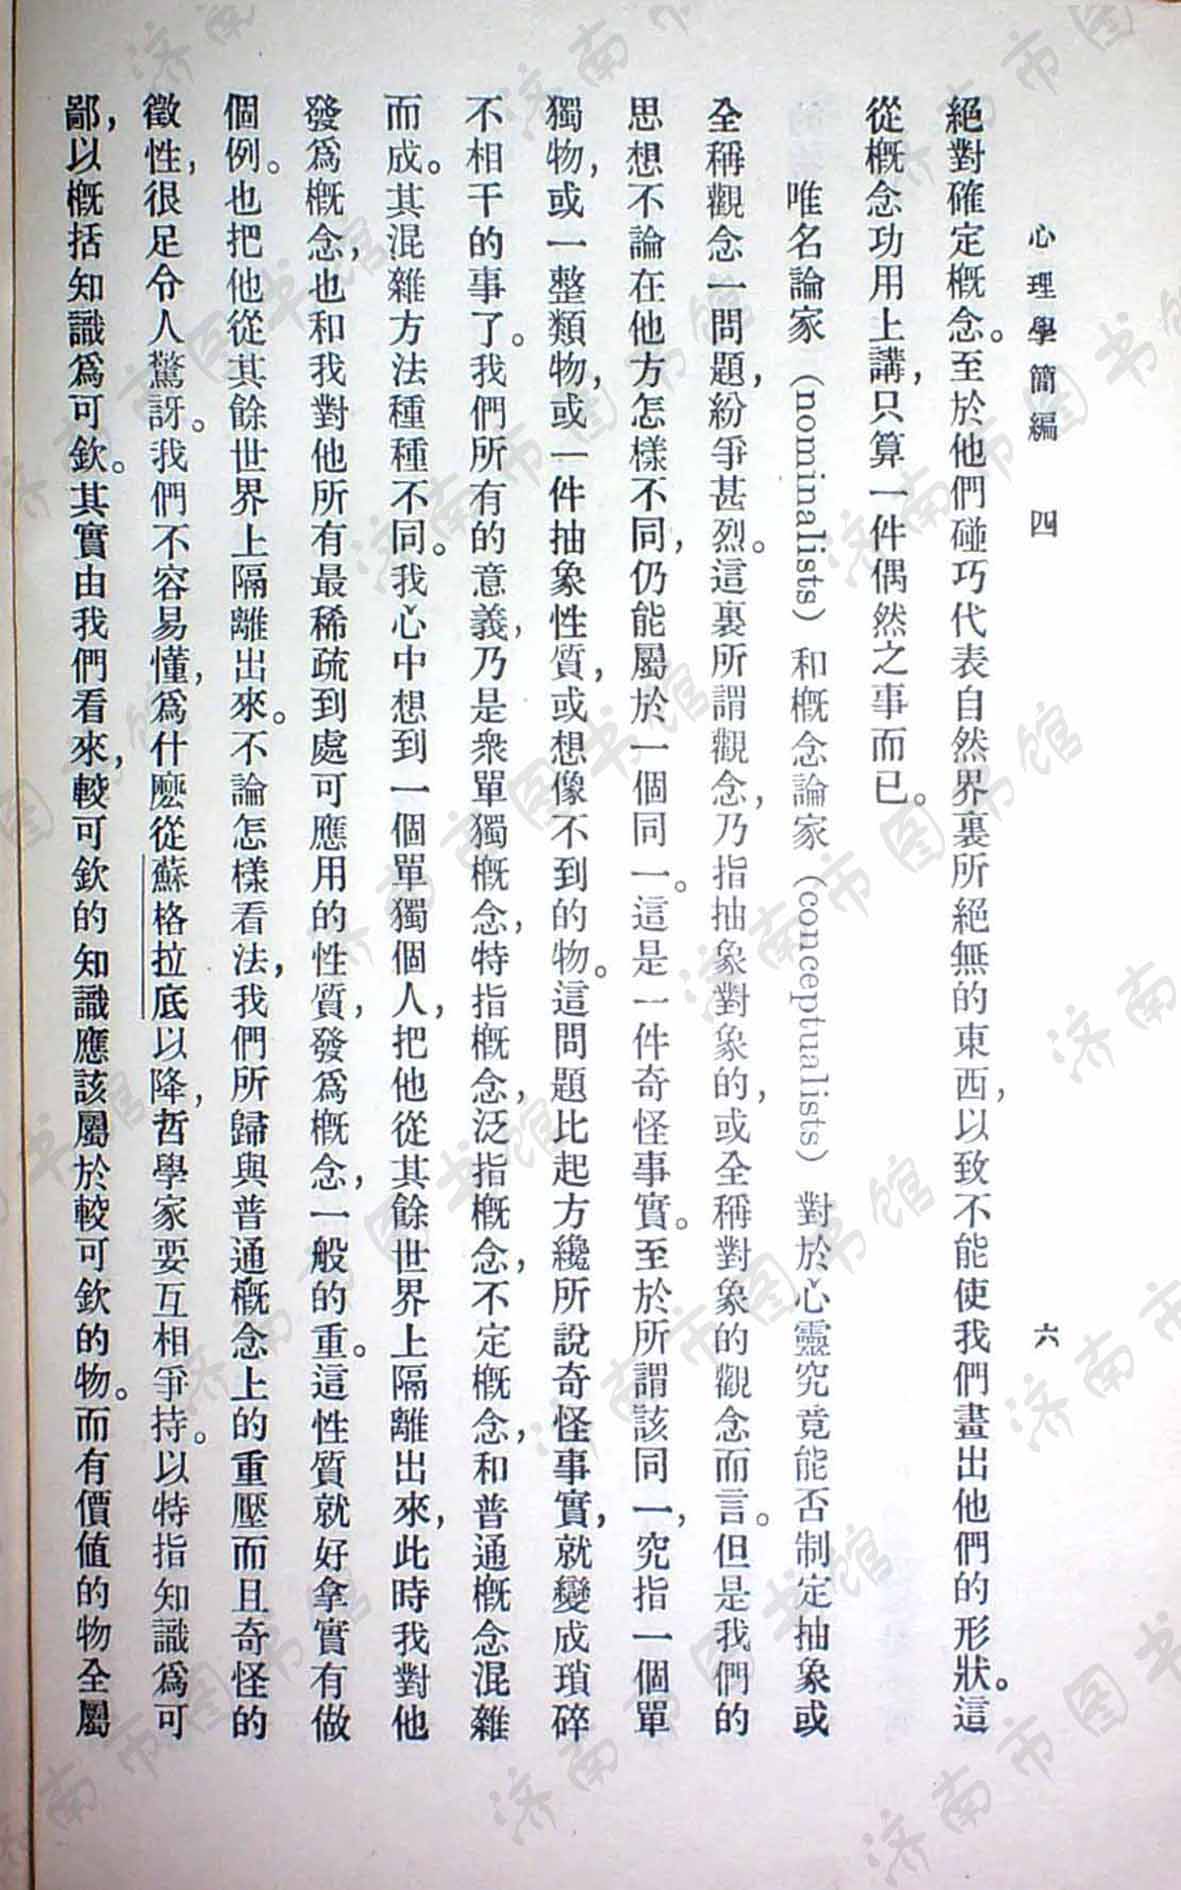 心理學簡編 四 六
絕對確定概念。至於他們碰巧代表自然界裏所絕無的東西，以致不能使我們畫出他們的形狀。這
從概念功用上講，只算一件偶然之事而已。
唯名論家（nominalists）和概念論家（conceptualists）對於心靈究竟能否制定抽象或
全稱觀念一問題，紛爭甚烈。這裏所謂觀念，乃指抽象對象的，或全稱對象的觀念而言。但是我們的
思想不論在他方怎樣不同，仍能屬於一個同一。這是一件奇怪事實。至於所謂該同一，究指一個單
獨物，或一整類物，或一件抽象性質，或想像不到的物。這問題比起方纔所說奇怪事實，就變成瑣碎
不相干的事了。我們所有的意義，乃是衆單獨概念，特指概念，泛指概念，不定概念，和普通概念混雜
而成。其混雜方法種種不同。我心中想到一個單獨個人，把他從其餘世界上隔離出來，此時我對他
發爲概念，也和我對他所有最稀疏到處可應用的性質，發爲概念，一般的重。這性質就好拿實有做
個例。也把他從其餘世界上隔離出來。不論怎樣看法，我們所歸與普通概念上的重壓而且奇怪的
徵性，很足令人驚訝。我們不容易懂，爲什麼從蘇格拉底以降，哲學家要互相爭持。以特指知識爲可
鄙，以概括知識爲可欽。其實由我們看來，較可欽的知識應該屬於較可欽的物。而有價值的物全屬
济南市图书馆